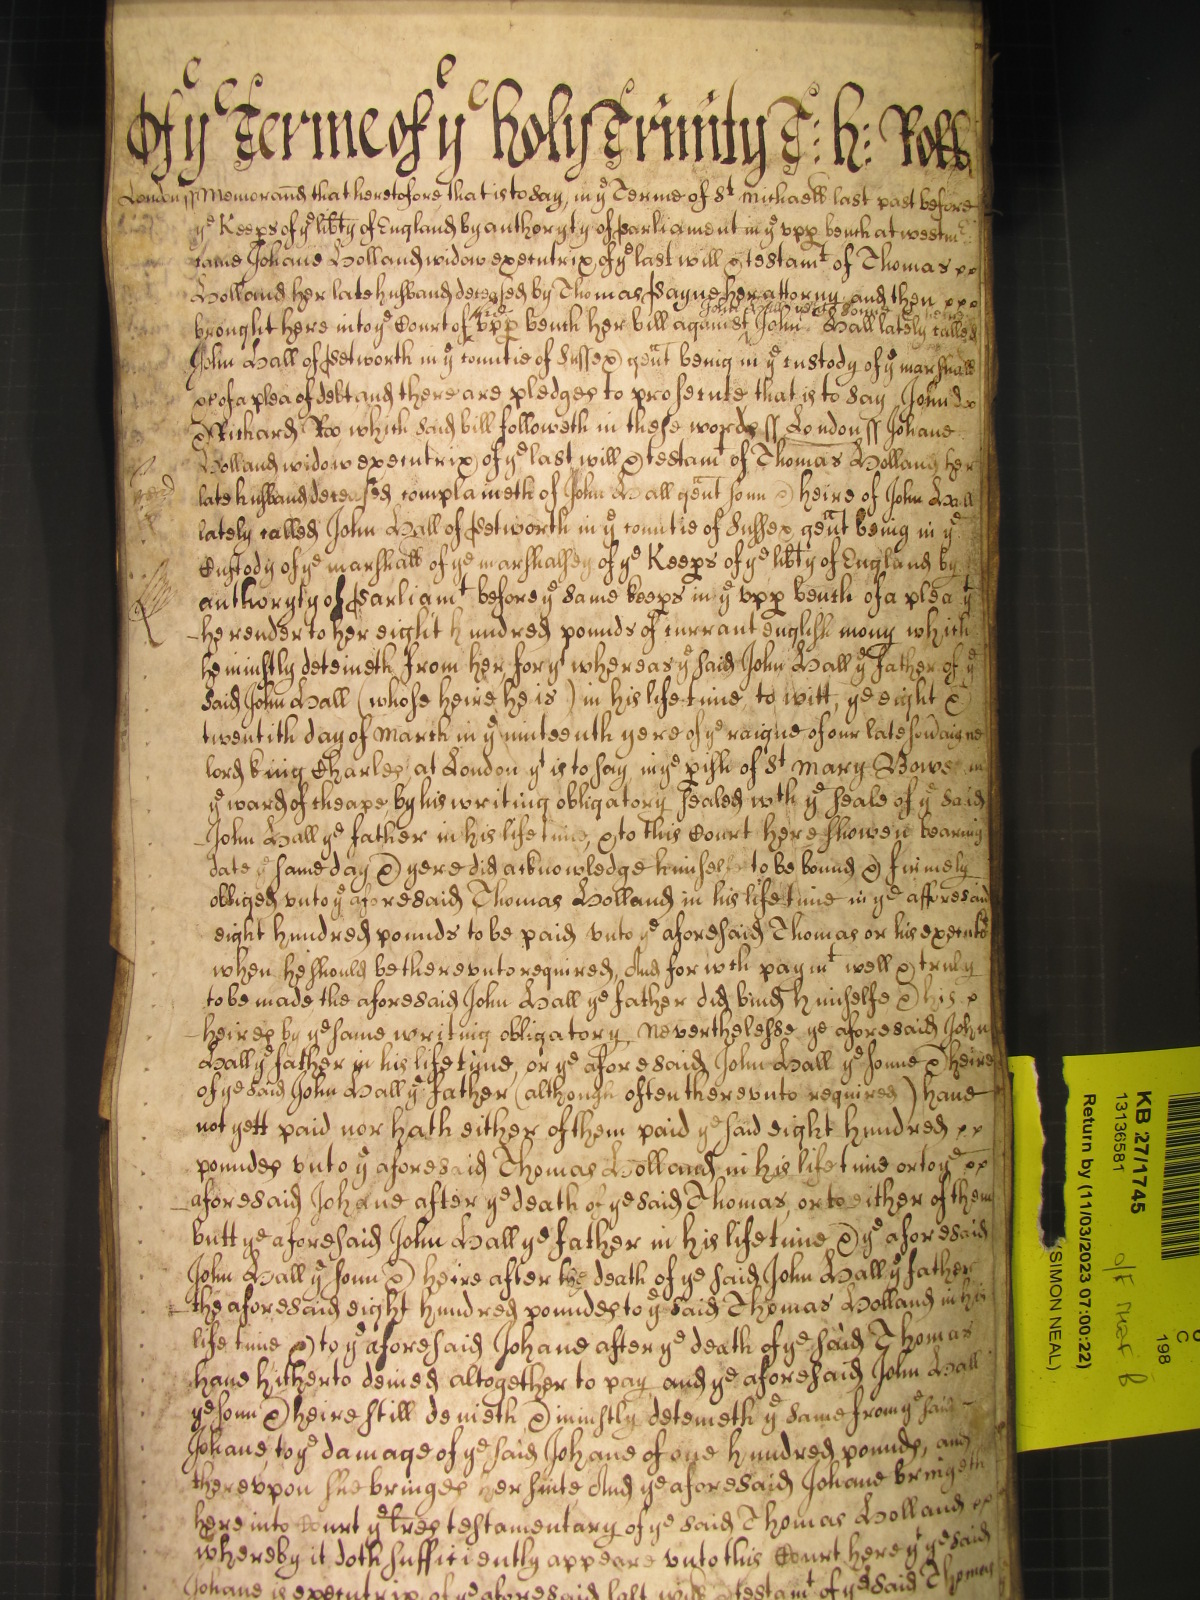 Of yᵉ Terme of yᵉ holy Trinity T: h: Roll
London ss Memorand that heretofore that is to say, in yᵉ Terme of Sᵗ Michaell last past before
yᵉ Keeps of yᵉ libty of England by authoryty of Parliament in yᵉ upp bench at westm
came Johane Holland widow executrix of yᵉ last will & testamᵗ of Thomas xx
Holland her late husband deceased by Thomas Payne her attorny and then xxx
brought here into yᵉ Court of upp bench her bill against John Hall lately called
John Hall of Petworth in yᵉ countie of Sussex gent being in yᵉ custody of yᵉ marshall
xc of a plea of debt and there are pledges to prosecute that is to say John Do
& Richard Roo which said bill followeth in these words ss London ss Johane
Holland widow executrix of yᵉ last will & testamᵗ of Thomas Holland her
late husband deceased complaineth of John Hall gent sonn & heire of John Hall
lately called John Hall of Petworth in yᵉ countie of Sussex gent being in yᵉ
Custody of yᵉ marshall of yᵉ marshalsey of yᵉ Keeps of yᵉ libty of England by
authoryty of Parliamᵗ before yᵉ same keeps in yᵉ upp bench of a plea yᵗ
he render to her eight hundred pounds of currant english mony which
he uniustly deteineth from her for yᵗ whereas yᵉ said John Hall yᵉ father of yᵉ
said John Hall (whose heire he is) in his life time, to witt, yᵉ eight &
twentith day of March in yᵉ ninteenth yere of yᵉ raigne of our late sovaigne
lord king Charles, at London yᵗ is to say, in yᵉ pish of Sᵗ Mary Bowe in
yᵉ ward of cheape by his writing obligatory sealed wth yᵉ seale of yᵉ said
John Hall yᵉ father in his life time, & to this Court here showen bearing
date yᵉ same day & yere did acknowledge himselfe to be bound & firmely
obliged unto yᵉ aforesaid Thomas Holland in his life time in yᵉ afforesaid
eight hundred pounds to be paid unto yᵉ aforesaid Thomas or his executs
when he should be thereunto required, And for wch paymᵗ well & truly
to be made the aforesaid John Hall yᵉ father did bind himselfe & his x
heires by yᵉ same writing obligatory Neverthelesse yᵉ aforesaid John
Hall yᵉ father in his life tyme, or yᵉ aforesaid John Hall yᵉ sonne & heire
of yᵉ said John Hall yᵉ father (although often thereunto required) have
not yett paid nor hath either of them paid yᵉ said eight hundred xx
poundes unto yᵉ aforesaid Thomas Holland in his life time or to yᵉ xx
aforesaid Johane after yᵉ death of yᵉ said Thomas, or to either of them
butt yᵉ aforesaid John Hall yᵉ father in his life time & yᵉ aforesaid
John Hall yᵉ sonn & heire after the death of yᵉ said John Hall yᵉ father
the aforesaid eight hundred poundes to yᵉ said Thomas Holland in his
life time & to yᵉ aforesaid Johane after yᵉ death of yᵉ said Thomas
have hitherto denied altogether to pay and yᵉ aforesaid John Hall
yᵉ sonn & heire still denieth & uniustly deteineth yᵉ same from yᵉ said
Johane, to yᵉ damage of yᵉ said Johane of one hundred pounds, and
thereupon she bringes her suite And yᵉ aforesaid Johane bringeth
here into Court yᵉ lres testamentary of yᵉ said Thomas Holland xx
whereby it doth sufficiently appeare unto this Court here yᵗ yᵉ said
Johane is executrix of yᵉ aforesaid last will & testamᵗ of yᵉ said Thomas
KB 27/1745
13136581
Return by (11/03/2023 07:00:22)
(SIMON NEAL)
C
198